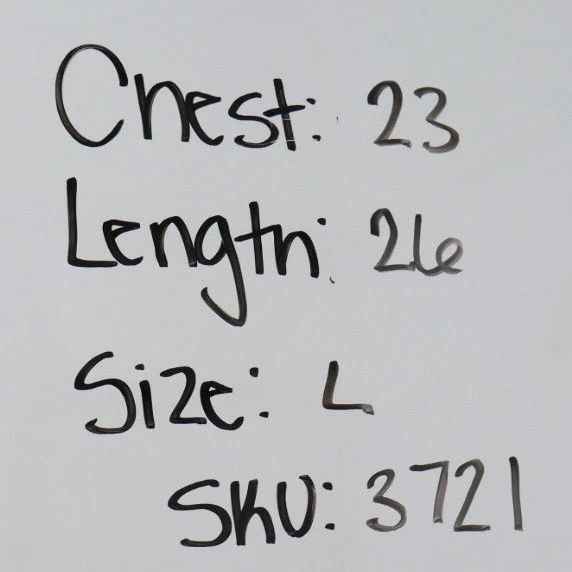 Chest: 23
Length: 26
Size: L
SKU: 3721